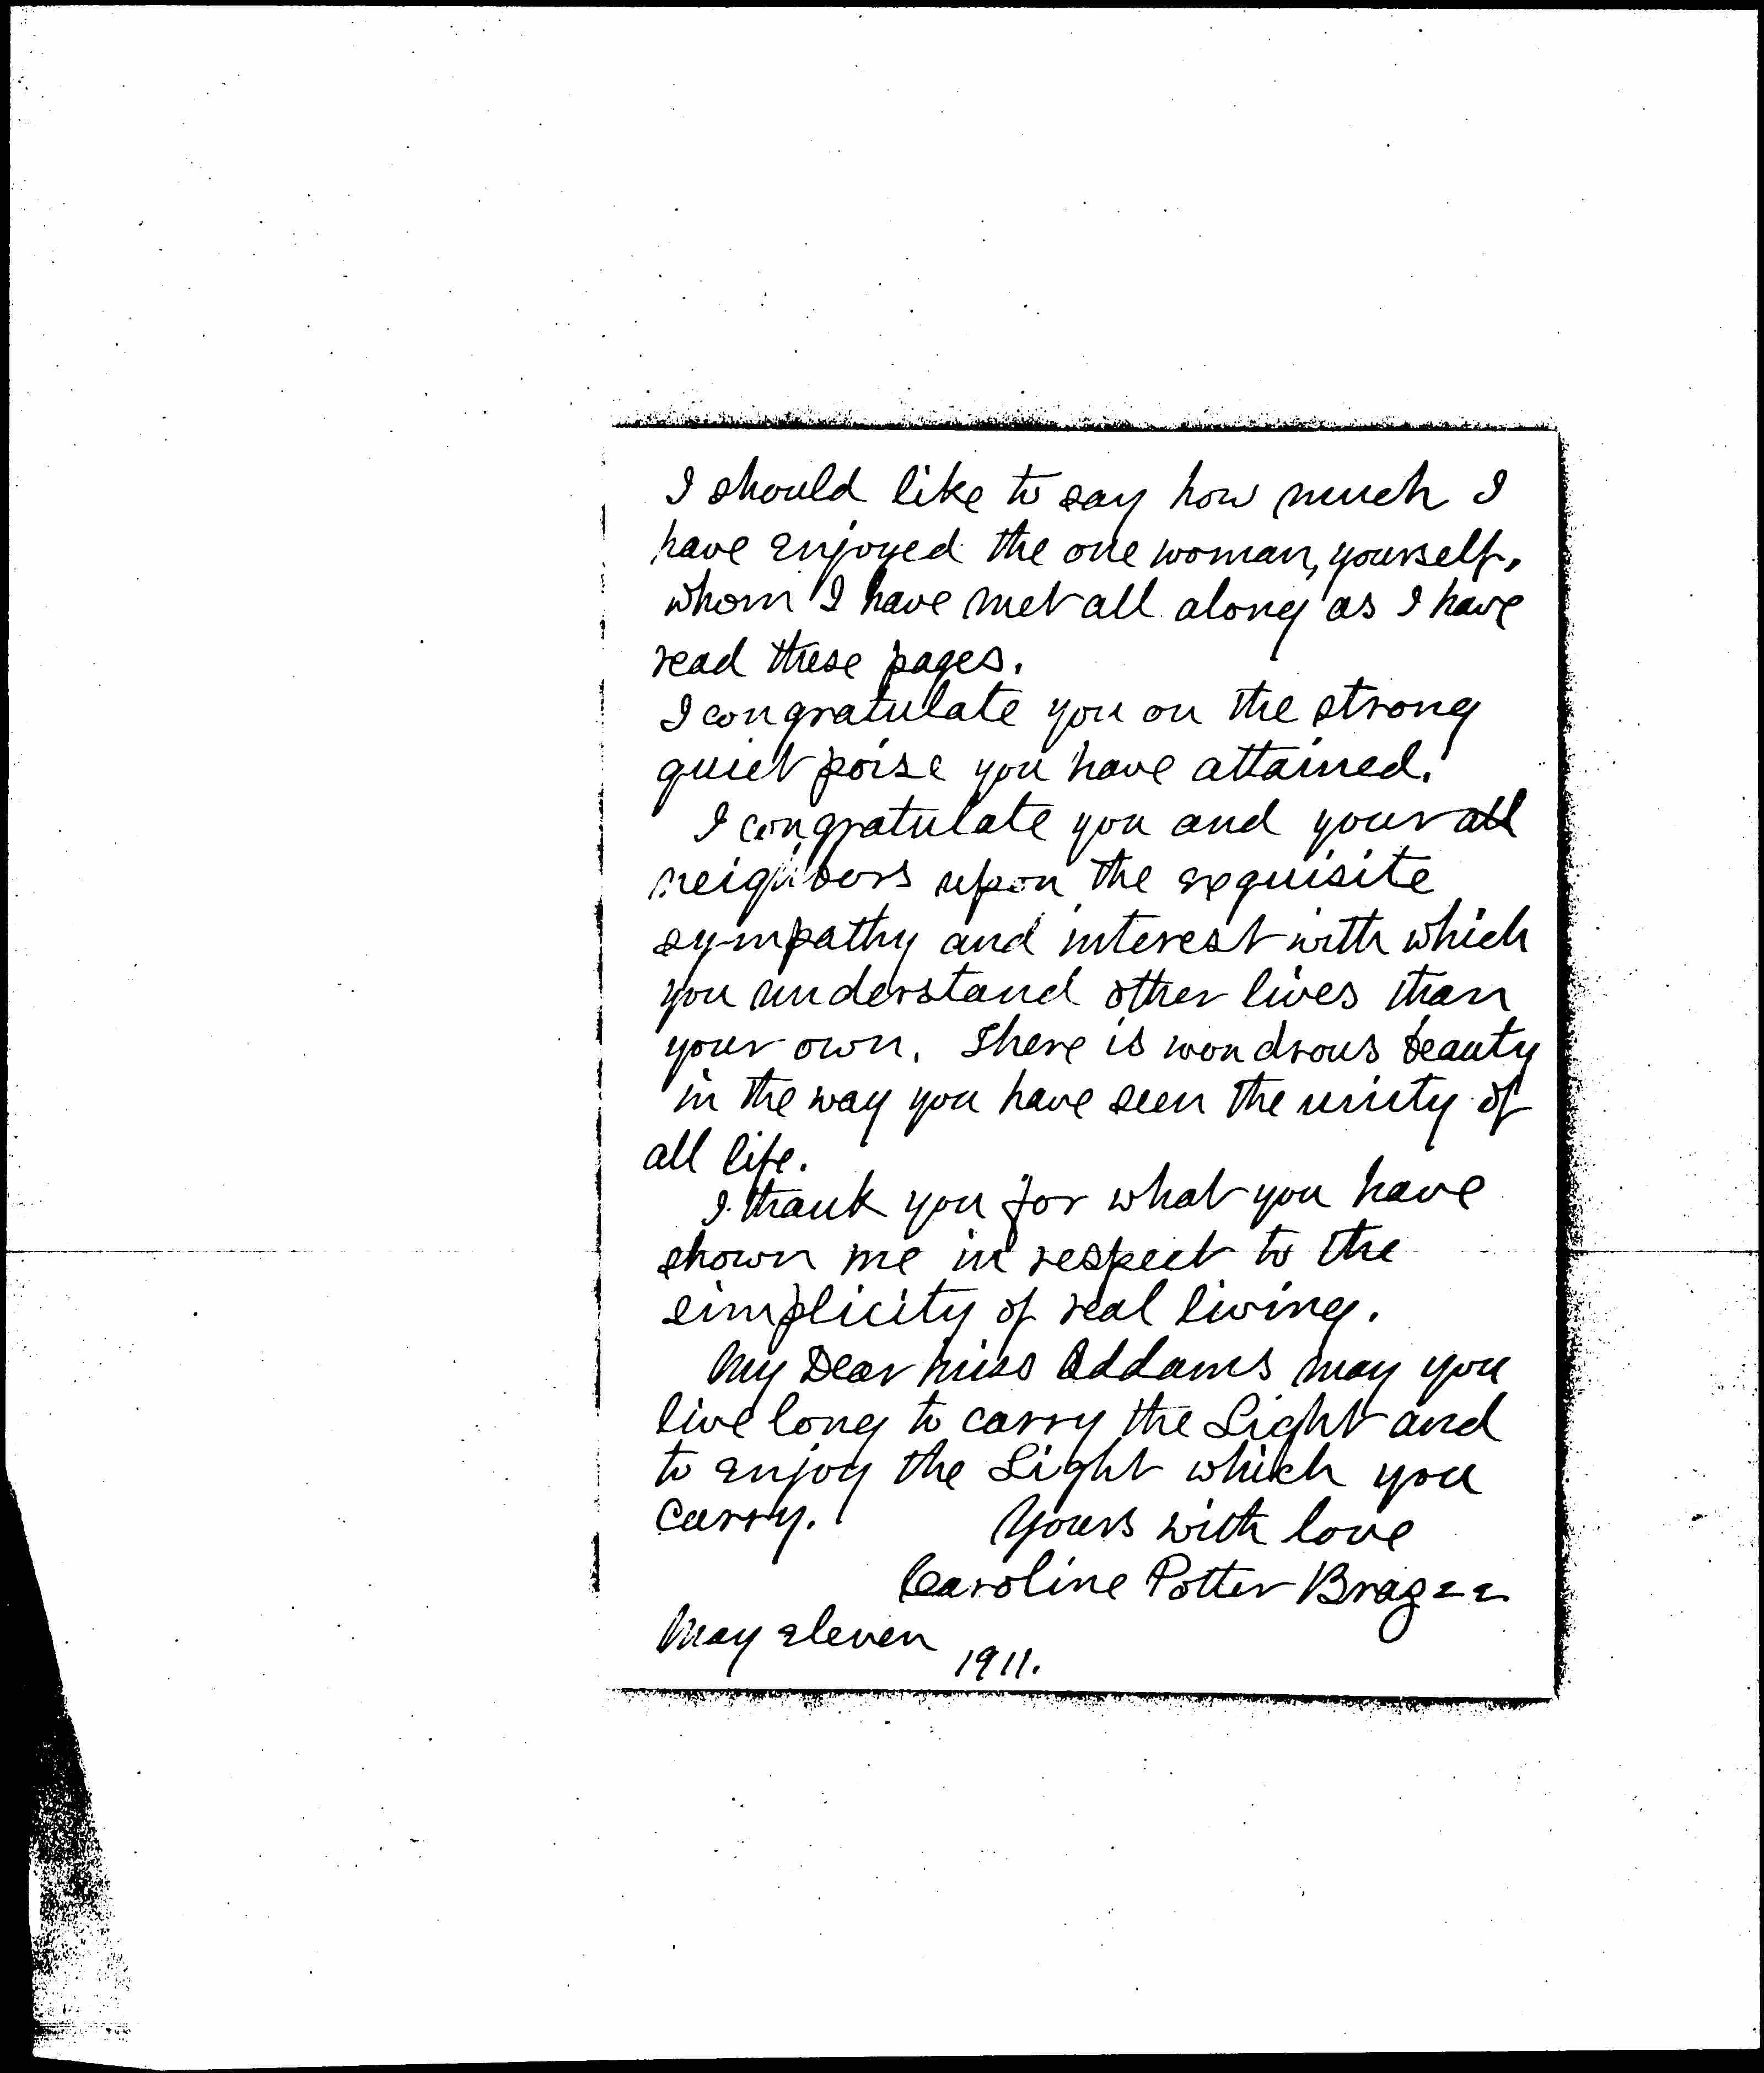 I should like to say how much I
have enjoyed the one woman, yourself,
whom I have met all along as I have
read these pages.
I congratulate you on the strong
quiet poise you have attained.
I congratulate you and your all
neighbors upon the exquisite
sympathy and interest with which
you understand other lives than
your own. There is wondrous beauty
in the way you have seen the unity of
all life.
I thank you for what you have
shown me in respect to the
simplicity of real living.
My Dear Miss Addams may you
live long to carry the Light and
to enjoy the Light which you
carry. Yours with love
Caroline Potter Brazee
May eleven
1911.